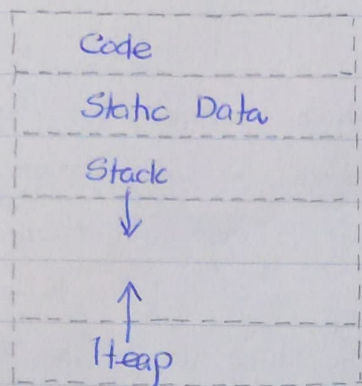 Code
Static Data
Stack
Heap